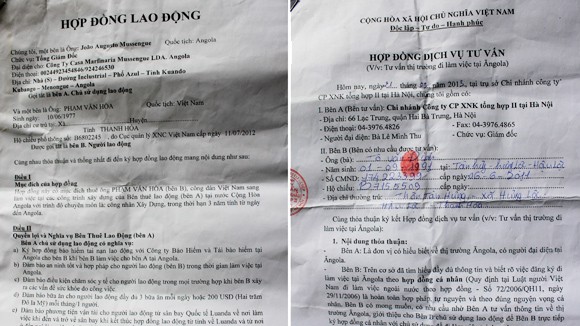 HỢP ĐỒNG LAO ĐỘNG
Chúng tôi, một bên là Ông: João Augusto Mussengue Quốc tịch: Angola
Chức vụ: Tổng Giám Đốc
Đại diện cho: Công Ty Casa Marfinaria Mussengue LDA. Angola
Điện thoại: 00244923454846/924246530
Địa chỉ: Nhà (S) – Đường Industrial – Phố Azul – Tinh Kuando
Kubango – Menongue – Angola
Gọi tắt là bên A: Chủ sử dụng lao động
Và một bên là Ông: PHẠM VĂN HÒA Quốc tịch: Việt Nam
Sinh ngày: 10/06/1977
THANH HÓA
Hộ chiếu phổ thông số: B6802245 do Cục quản lý XNC Việt Nam cấp ngày 11/07/2012
Được gọi tắt là bên B: Người lao động
Cùng nhau thỏa thuận và thống nhất đi đến ký hợp đồng lao động mang nội dung như sau:
Điều I
Mục đích của hợp đồng
Hợp đồng này có mục đích thuê ông PHẠM VĂN HÒA (bên B), công dân Việt Nam sang
làm việc tại các công trình xây dựng của Bên thuê lao động (bên A) tại nước Cộng Hòa
Angola với trình độ chuyên môn lắc công nhân Xây Dựng, trong thời hạn 3 năm tính từ ngày
đến Angola.
Điều II
Quyền lợi và Nghĩa vụ Bên Thuê Lao Động (bên A)
Bên A chủ sử dụng lao động có nghĩa vụ:
a) Ký hợp đồng bảo hiểm tai nạn lao động với Công Ty Bảo Hiểm và Tái bảo hiểm tại
Angola cho bên B khi bên B làm việc cho bên A tại Angola.
b) Đảm bảo an ninh và nơi ở hợp pháp cho người lao động (bên B) trong thời gian làm việc tại
Angola.
c) Đảm bảo điều kiện chăm sóc y tế cho người lao động trong mọi trường hợp khi bên B xảy
ra các vấn đề sức khỏe do công việc.
d) Đảm bảo bữa ăn cho người lao động đầy đủ 3 bữa ăn mỗi ngày hoặc 200 USD (Hai trăm
Đô la Mỹ) mỗi tháng/1 người.
e) Đảm bảo phương tiện vận tải cho người lao động từ sân bay Quốc tế Luanda về nơi làm
việc khi đến và trở về sân bay khi kết thúc hợp đồng lao động từ tỉnh về Luanda và về nơi
CỘNG HÒA XÃ HỘI CHỦ NGHĨA VIỆT NAM
Độc lập – Tự do – Hạnh phúc
HỢP ĐỒNG DỊCH VỤ TƯ VẤN
(V/v: Tư vấn thị trường đi làm việc tại Angola)
Hôm nay, ngày 2015, tại trụ sở Chi nhánh công ty
CP XNK tổng hợp II tại Hà Nội, chúng tôi gồm có:
I. Bên A (Bên tư vấn): Chi nhánh Công ty CP XNK tổng hợp II tại Hà Nội
- Địa chỉ: 66 Lạc Trung, quận Hai Bà Trưng, Hà Nội
- Điện thoại: 04-3976.4826 - Fax: 04-3976.4865
- Người đại diện: Bà Lê Minh Thu - Chức vụ: Giám đốc
II. Bên B (Bên có nhu cầu được tư vấn):
- Ông (bà):
- Năm sinh: 1991
- Số CMND: cấp
- Hộ chiếu:
- Địa chỉ thường trú:
Cùng thỏa thuận ký kết Hợp đồng dịch vụ tư vấn (v/v: Tư vấn thị trường
đi làm việc tại Angola) như sau:
1. Nội dung thỏa thuận:
Bên A: Là đơn vị có hiểu biết về thị trường Ăngola, có người đại diện tại
Ăngola.
Bên B: Trên cơ sở đã tìm hiểu đầy đủ thông tin và biết rõ việc đăng ký đi
làm việc tại Ăngola theo hợp đồng cá nhân (Quy định tại Luật người Việt
Nam đi làm việc ngoài nước theo hợp đồng - Số 72/2006/QH11, ngày
29/11/2006) là hoàn toàn hợp pháp, tự nguyện và theo đúng nguyện vọng cá
nhân, Bên B có mong muốn, có nhu cầu nhờ Bên A tư vấn thông tin về thị
trường Ăngola, giới thiệu cho Bên B sang Ăngola để Bên B trực tiếp ký kết
hợp đồng cá nhân với chủ sử dụng